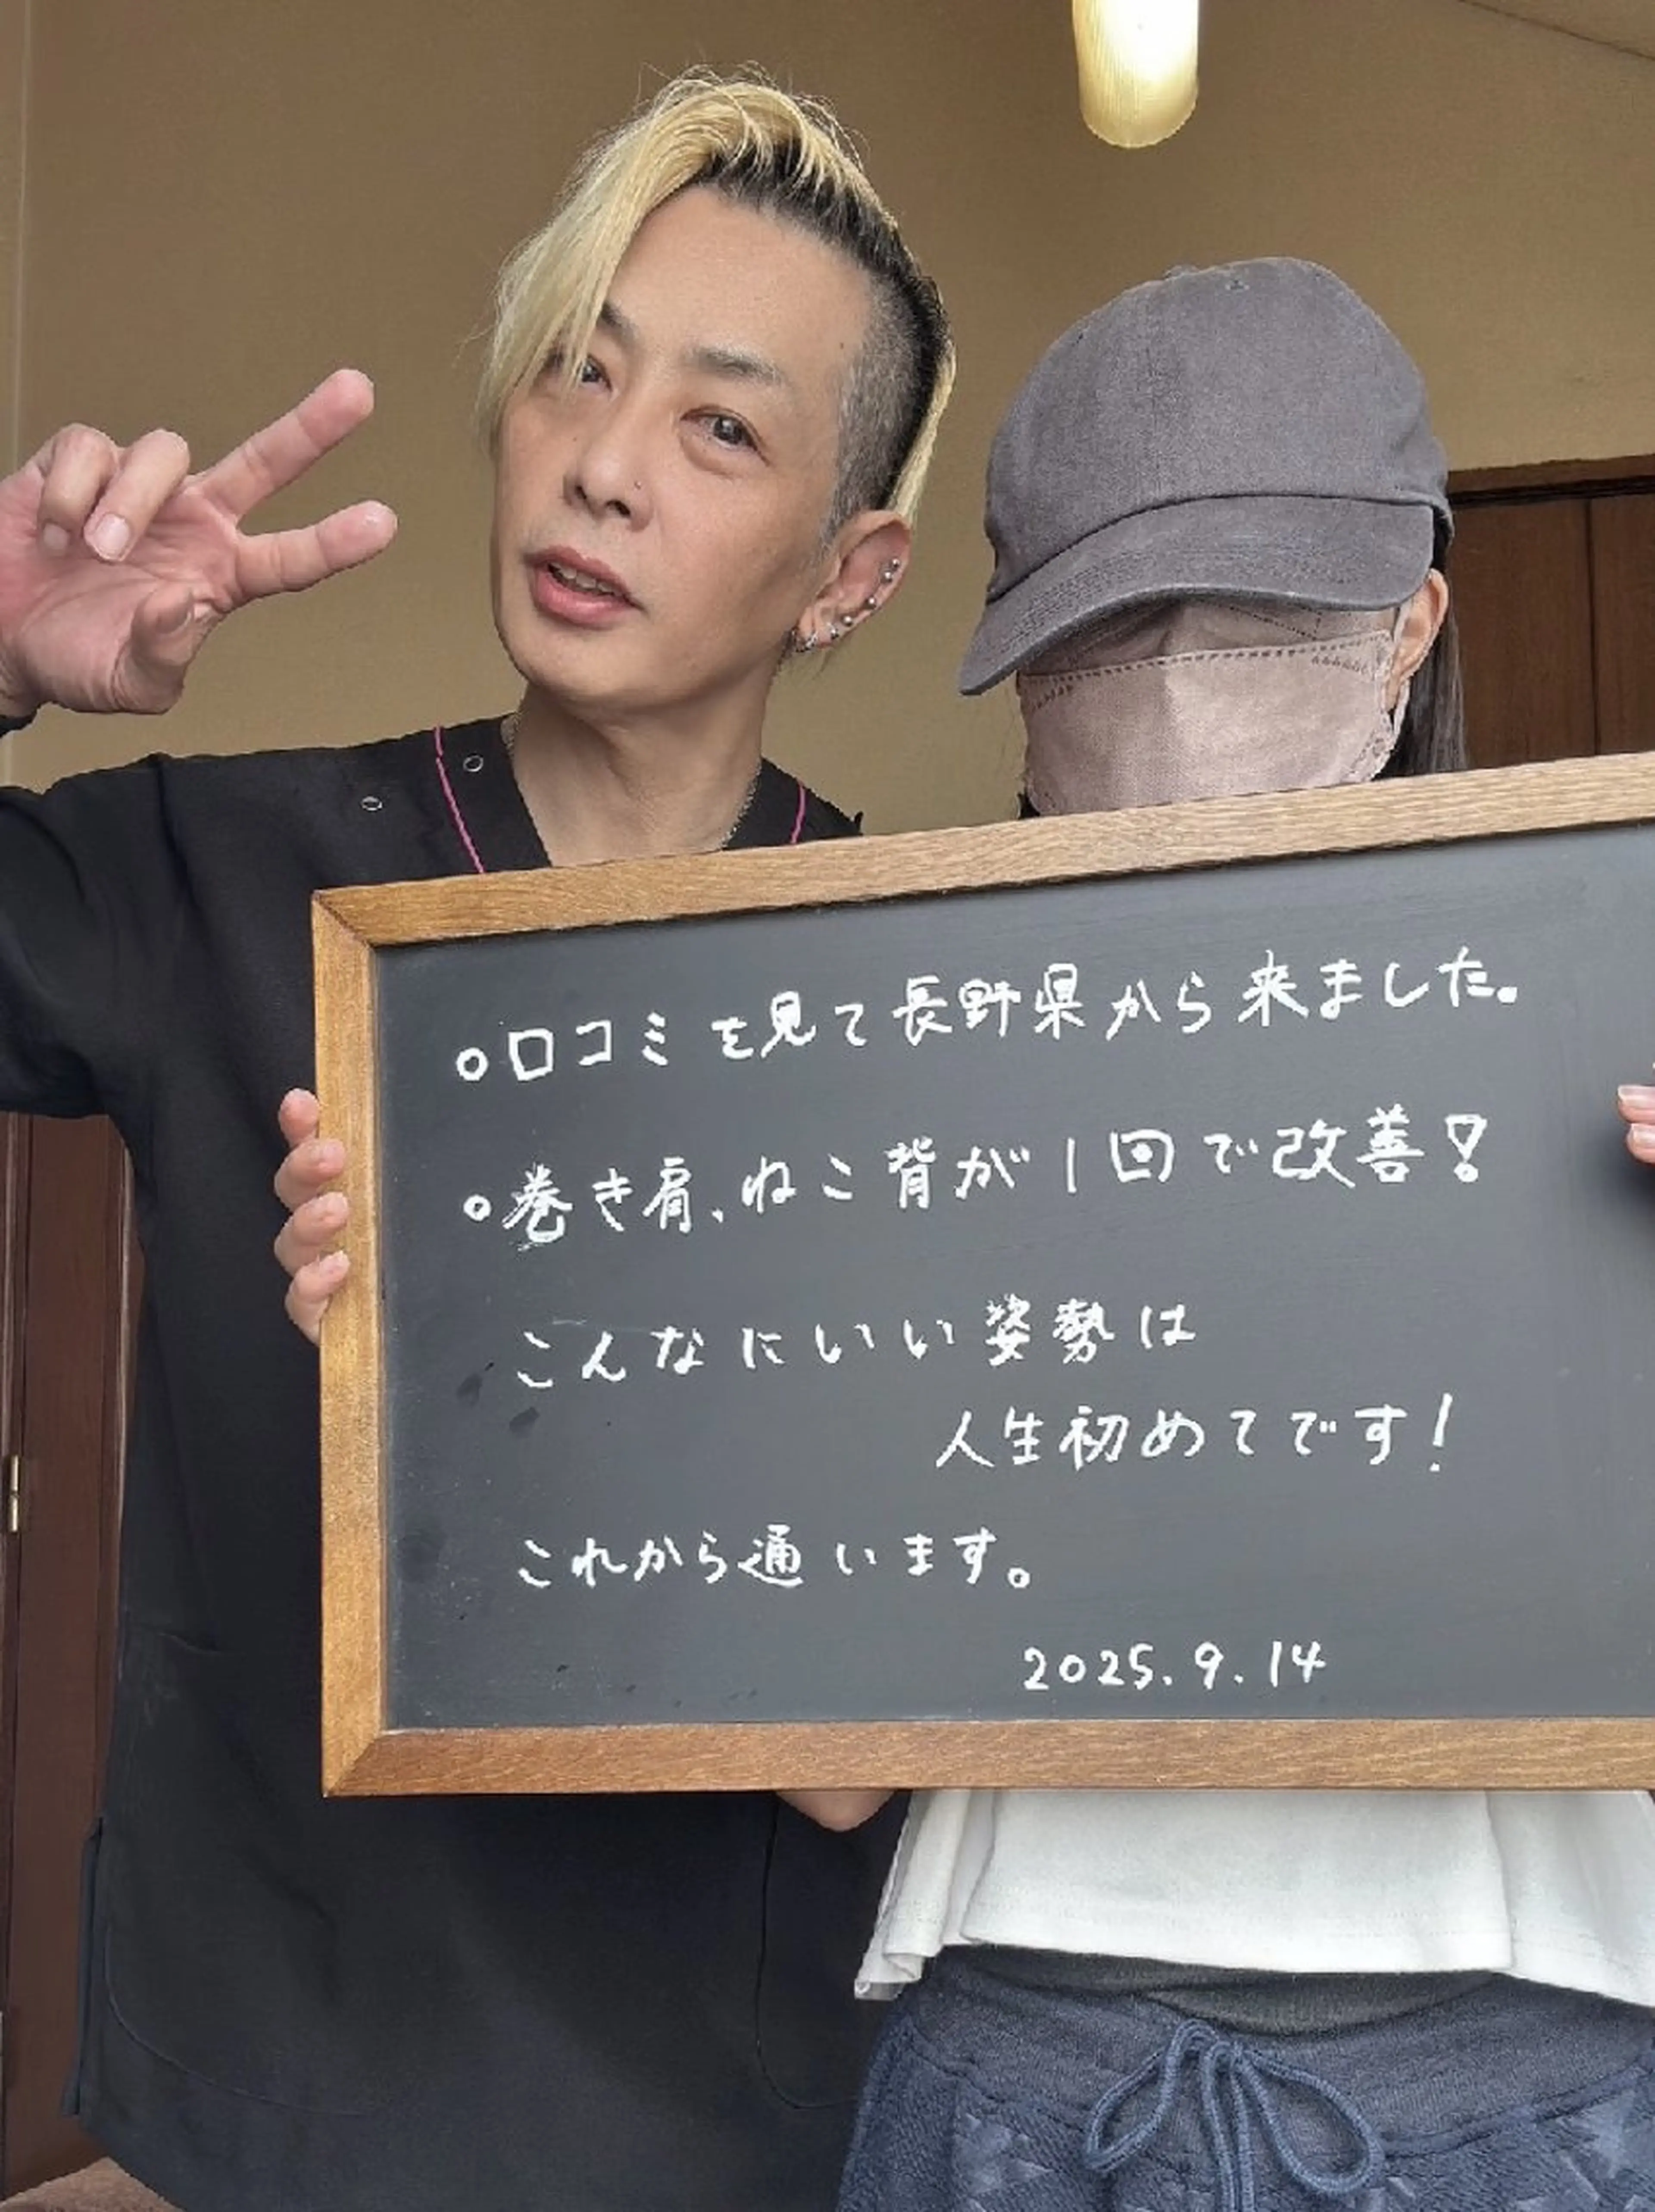 ○口コミを見て長野県から来ました。
○巻き肩、ねこ背が1回で改善!
こんなにいい姿勢は
人生初めてです!
これから通います。
2025.9.14